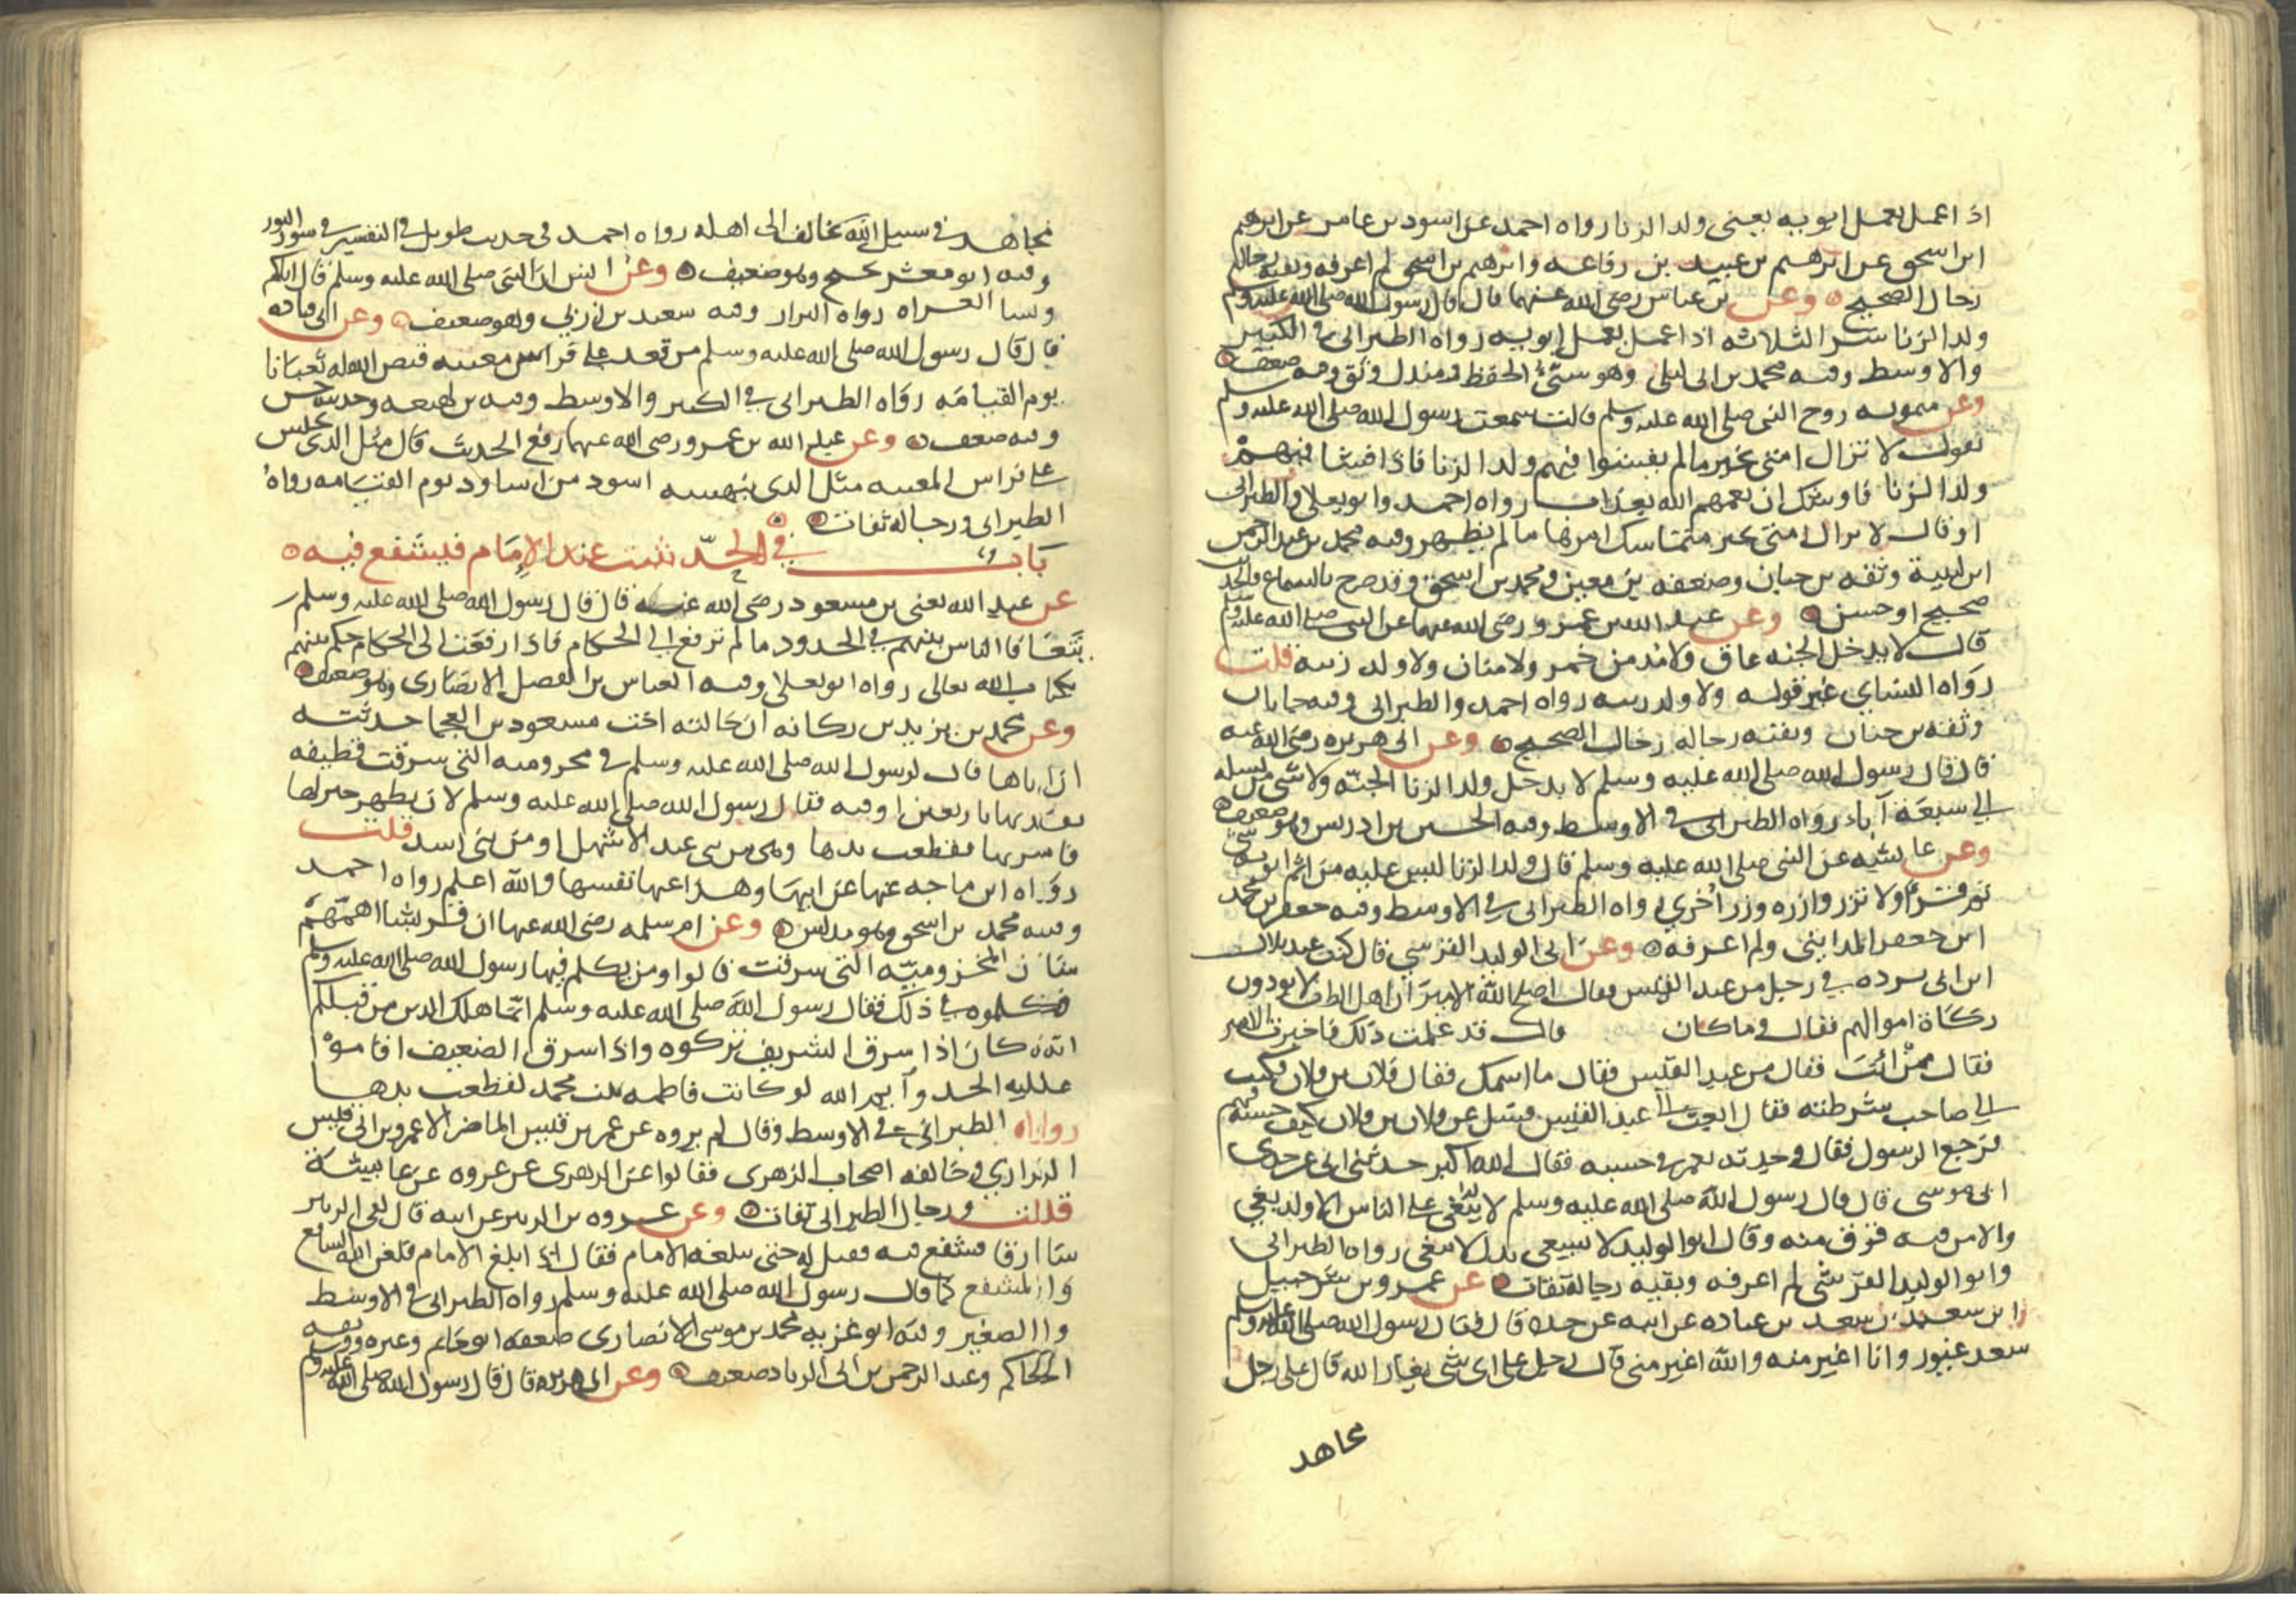 اذا عمل بعمل ابويه يعنى ولد الزنا رواه احمد عن اسود بن عامر عن ابرهيم
ابن اسحق عن ابرهيم بن عبيد بن رفاعه وابرهيم بن اسحق لم اعرفه وبقيه رجاله
رجال الصحيح وعن بن عباس رضى الله عنهما قال قال رسول الله صلى الله عليه وسلم
ولد الزنا شر الثلاثه اذا عمل بعمل ابويه رواه الطبرانى فى الكبير
والاوسط وفيه محمد بن ابى ليلى وهو سئ الحفظ ومندل وثق وفيه ضعف
وعن ميمونه زوج النبى صلى الله عليه وسلم قالت سمعت رسول الله صلى الله عليه وسلم
يقول لا تزال امتى بخير مالم يفشوا فيهم ولد الزنا فاذا فشا فيهم
ولد الزنا فاوشك ان يعمهم الله بعذاب رواه احمد وابو يعلى والطبرانى
او قال لا يزال امتى بخير متماسك امرها ما لم يظهر وفيه محمد بن عبد الرحمن
ابن لبيبة وثقه بن حبان وضعفه بن معين ومحمد بن اسحق وقد صرح بالسماع فالحديث
صحيح او حسن وعن عبد الله بن عمرو رضى الله عنهما عن النبى صلى الله عليه وسلم
قال لا يدخل الجنه عاق ولا مدمن خمر ولا منان ولا ولد زنيه قلت
رواه النساى غير قوله ولا ولد زنيه رواه احمد والطبرانى وفيه جابان
وثقه بن حبان وبقيه رجاله رجال الصحيح وعن ابى هريره رضى الله عنه
قال قال رسول الله صلى الله عليه وسلم لا يدخل ولد الزنا الجنه ولا شى من نسله
الى سبعة آباء رواه الطبرانى فى الاوسط وفيه الحسين بن ادريس وهو ضعيف
وعن عايشه عن النبى صلى الله عليه وسلم قال ولد الزنا ليس عليه من اثم ابويه شى
ثم قرأ ولا تزر وازره وزر اخرى رواه الطبرانى فى الاوسط وفيه جعفر بن محمد
ابن جعفر المداينى ولم اعرفه وعن ابى الوليد القرشى قال كنت عند بلال
ابن ابى برده فى رجل من عبد القيس فقال اصلح الله الامير ان اهل الطف لا يودون
زكاة اموالهم فقال وما كان قال قد علمت ذلك فاخبرت الامير
فقال ممن انت فقال من عبد القيس فقال ما اسمك فقال فلان بن فلان فكتب
الى صاحب شرطته فقال ابعث الى عبد القيس فسل عن فلان بن فلان كيف حسبه فيهم
فرجع الرسول فقال وجدته يغمز فى حسبه فقال الله اكبر حدثنى ابى عن جدى
ابى موسى قال قال رسول الله صلى الله عليه وسلم لا يبغى على الناس الا ولد بغى
والا من فيه عرق منه وقال ابو الوليد لا يسعى بدل لا يبغى رواه الطبرانى
وابو الوليد القرشى لم اعرفه وبقيه رجاله ثقات عن عمرو بن شرحبيل
ابن سعيد بن سعد بن عباده عن ابيه عن جده قال قال رسول الله صلى الله عليه وسلم
سعد غيور وانا اغير منه والله اغير منى قال رجل على اى شى يغار الله قال على رجل
مجاهد
مجاهد فى سبيل الله يخالف الى اهله رواه احمد فى حديث طويل فى التفسير فى سورة النور
وفيه ابو معشر نجيح وهو ضعيف وعن انس ان النبى صلى الله عليه وسلم قال اياكم
ونسا الغزاه رواه البزار وفيه سعيد بن زربى وهو ضعيف وعن ابى قتاده
قال قال رسول الله صلى الله عليه وسلم من قعد على فراش مغيبه قيض الله له ثعبانا
يوم القيامه رواه الطبرانى فى الكبير والاوسط وفيه بن لهيعه وحديثه حسن
وفيه ضعف وعن عبد الله بن عمرو رضى الله عنهما رفع الحديث قال مثل الذى يجلس
على فراش المغيبه مثل الذى ينهشه اسود من اساود يوم القيامه رواه
الطبرانى ورجاله ثقات
باب فى الحد يثبت عند الامام فيشفع فيه
عن عبد الله يعنى بن مسعود رضى الله عنه قال قال رسول الله صلى الله عليه وسلم
يتعافا الناس بينهم فى الحدود ما لم ترفع الى الحكام فاذا رفعت الى الحكام حكم بينهم
بكتاب الله تعالى رواه ابو يعلى وفيه العباس بن الفضل الانصارى وهو ضعيف
وعن محمد بن يزيد بن ركانه ان خالته اخت مسعود بن العجما حدثته
ان اباها قال لرسول الله صلى الله عليه وسلم فى مخزوميه التى سرقت قطيفه
نفديها باربعين اوقيه فقال رسول الله صلى الله عليه وسلم لان تطهر خير لها
فامر بها فقطعت يدها وهى من بنى عبد الاشهل او من بنى اسد قلت
رواه ابن ماجه عنها عن ابيها وهذا عنها نفسها والله اعلم رواه احمد
وفيه محمد بن اسحق وهو مدلس وعن ام سلمه رضى الله عنها ان قريشا اهمهم
شان المخزوميه التى سرقت قالوا ومن يكلم فيها رسول الله صلى الله عليه وسلم
فكلموه فى ذلك فقال رسول الله صلى الله عليه وسلم انما هلك الذين من قبلكم
انه كان اذا سرق الشريف تركوه واذا سرق الضعيف اقاموْ
عليه الحد وأيم الله لو كانت فاطمه بنت محمد لقطعت يدها
رواه الطبرانى فى الاوسط وقال لم يروه عن عمر بن قيس الماضر الا عمرو بن ابى قيس
الرازى وخالفه اصحاب الزهرى فقالوا عن الزهرى عن عروه عن عايشة
قلت ورجال الطبرانى ثقات وعن عروه بن الزبير عن ابيه قال لقى الزبير
سارقا فشفع فيه فقيل له حتى يبلغه الامام فقال اذا ابلغ الامام فلعن الله الشافع
والمشفع كما قال رسول الله صلى الله عليه وسلم رواه الطبرانى فى الاوسط
والصغير وفيه ابو غزيه محمد بن موسى الانصارى ضعفه ابو حاتم وغيره ووثقه
الحاكم وعبد الرحمن بن ابى الزناد ضعيف وعن ابى هريره قال قال رسول الله صلى الله عليه وسلم